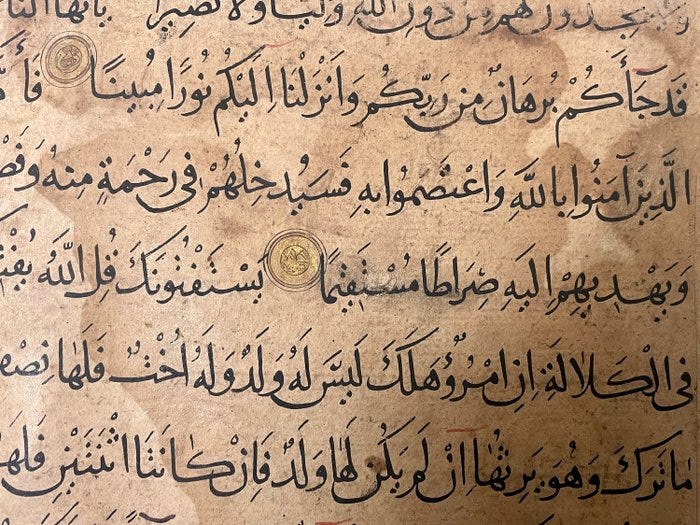 يجدون لهم من دون الله وليا ولا نصيرا يا أيها النا
قَدْ جَاءَكُمْ بُرْهَانٌ مِنْ رَبِّكُمْ وَأَنْزَلْنَا إِلَيْكُمْ نُورًا مُبِينًا فَأَمَّا
الَّذِينَ آمَنُوا بِاللَّهِ وَاعْتَصَمُوا بِهِ فَسَيُدْخِلُهُمْ فِي رَحْمَةٍ مِنْهُ وَفَضْ
وَيَهْدِيهِمْ إِلَيْهِ صِرَاطًا مُسْتَقِيمًا يَسْتَفْتُونَكَ قُلِ اللَّهُ يُفْتِ
فِي الْكَلَالَةِ إِنِ امْرُؤٌ هَلَكَ لَيْسَ لَهُ وَلَدٌ وَلَهُ أُخْتٌ فَلَهَا نِصْفُ
مَا تَرَكَ وَهُوَ يَرِثُهَا إِنْ لَمْ يَكُنْ لَهَا وَلَدٌ فَإِنْ كَانَتَا اثْنَتَيْنِ فَلَهُ